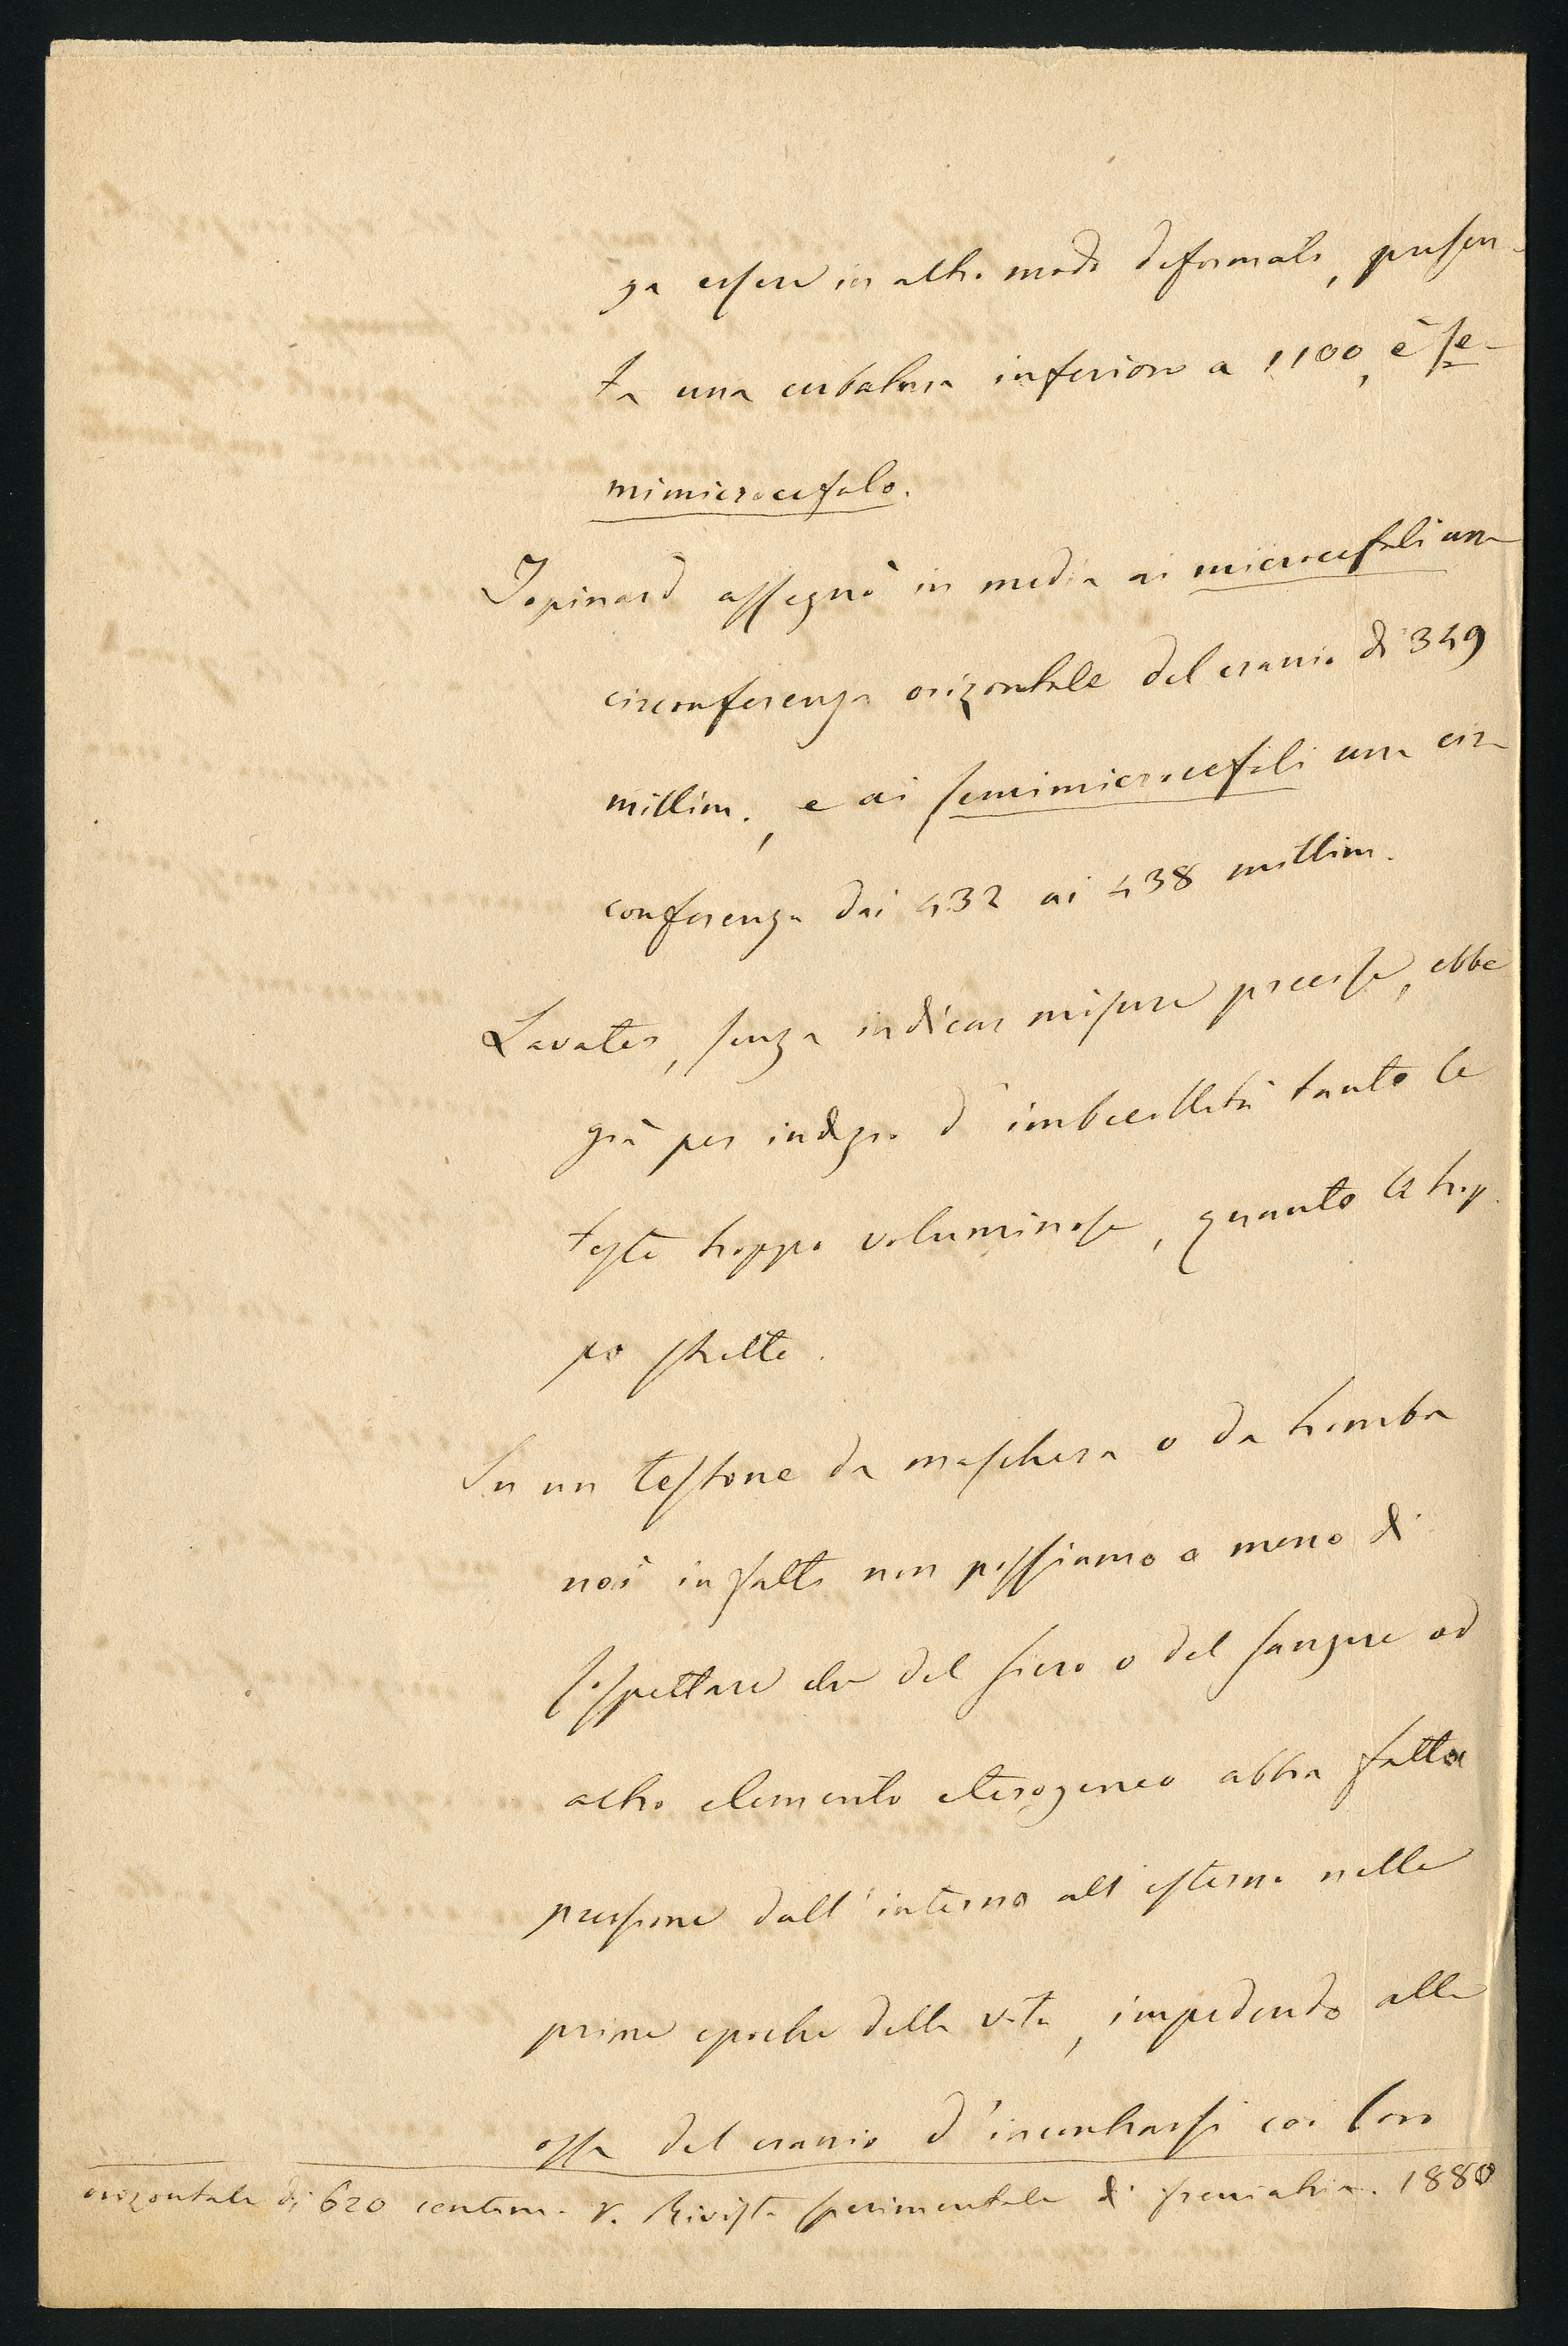 za essere in altro modo deformato, presen-
ta una cubatura inferiore a 1100, è se-
mimicrocefalo.
Topinard assegnò in media ai microcefali una
circonferenza orizontale del cranio di 349
millim., e ai semimicrocefali una cir-
conferenza dai 432 ai 438 millim.
Lavater, senza indicar misure precise, ebbe
già per indizio d'imbecillità tanto le
teste troppo voluminose, quanto le trop-
po strette.
In un testone da maschera o da tromba
noi infatti non possiamo a meno di
sospettare che del siero o del sangue od
altro elemento eterogeneo abbia fatta
pressione dall'interno all'esterno nelle
prime epoche della vita, impedendo alle
ossa del cranio d'incontrarsi coi loro
orizontale di 620 centim. V. Rivista sperimentale di freniatria. 1880